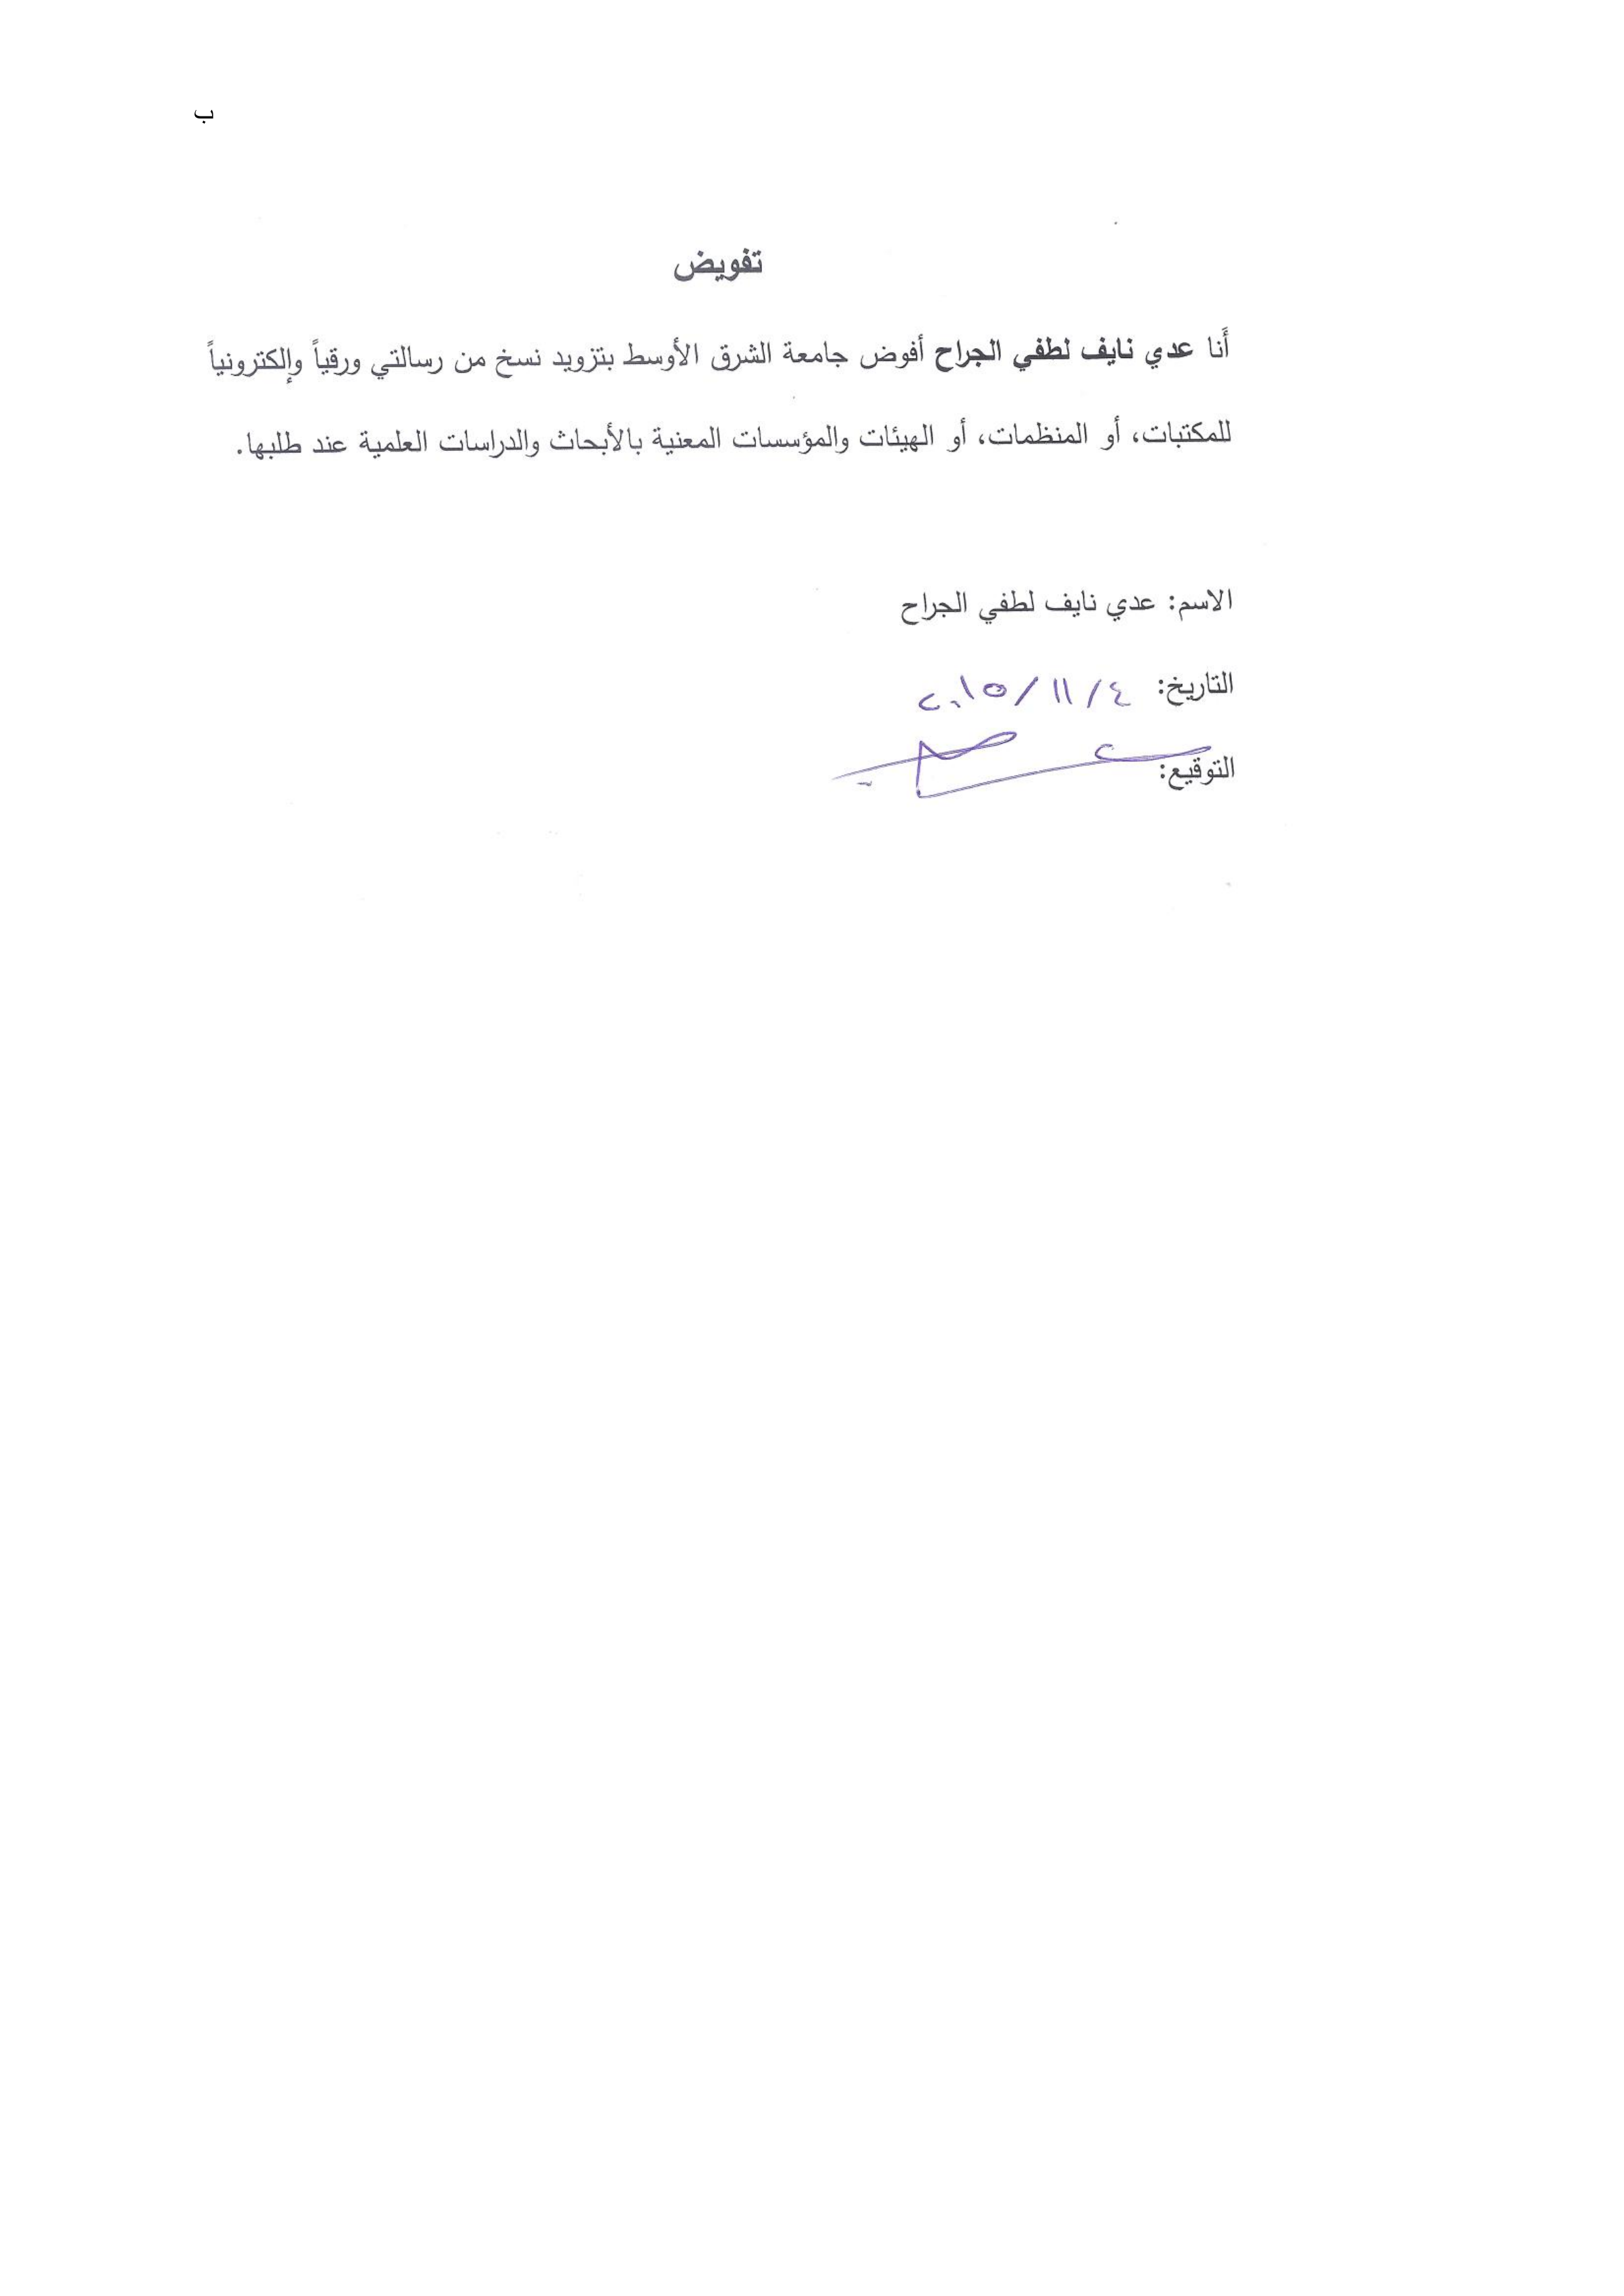 ب
تفويض
أَنا عدي نايف لطفي الجراح أفوض جامعة الشرق الأوسط بتزويد نسخ من رسالتي ورقياً وإلكترونياً
للمكتبات، أو المنظمات، أو الهيئات والمؤسسات المعنية بالأبحاث والدراسات العلمية عند طلبها.
الاسم: عدي نايف لطفي الجراح
التاريخ: ٤/ ١١ /٢٠١٥
التوقيع: